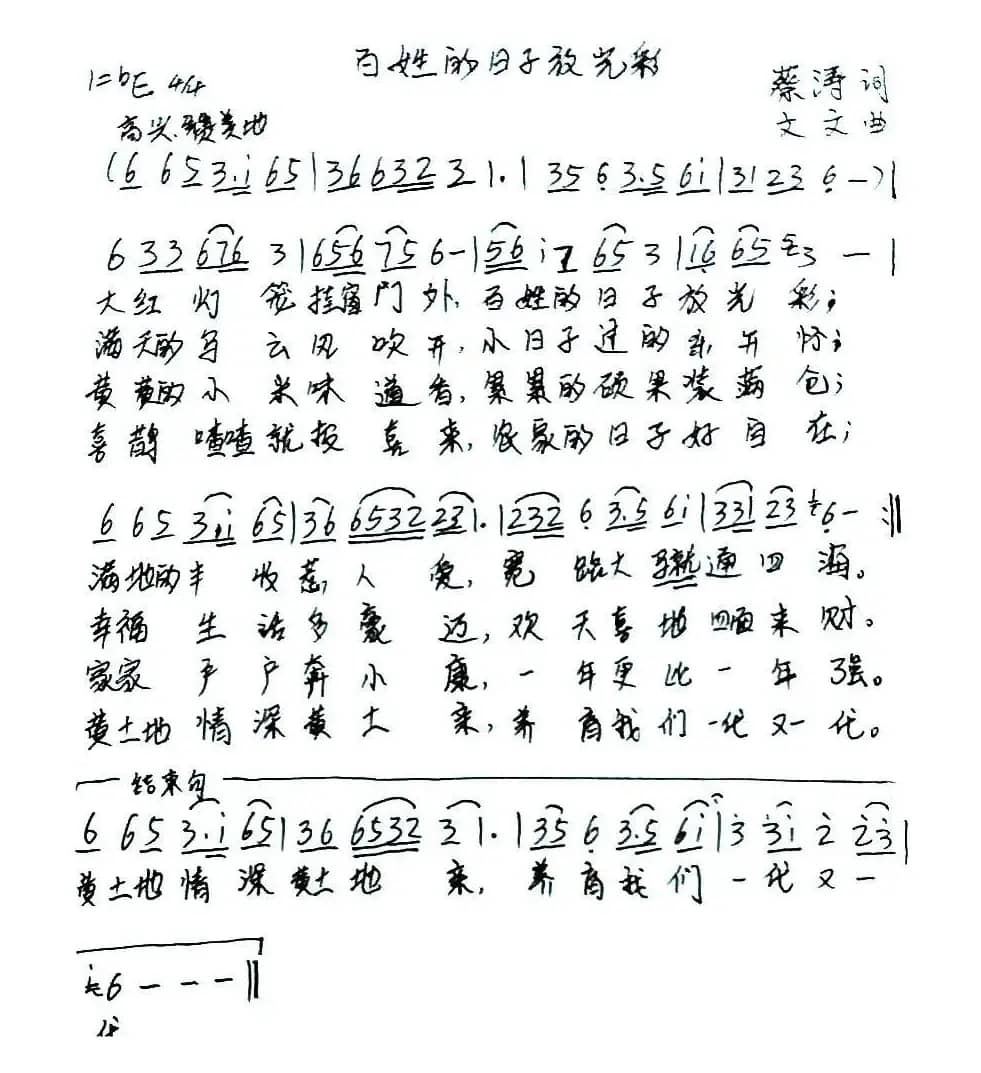 百姓的日子放光彩
1=bE 4/4
蔡涛 词
高兴.赞美地
文文曲
(6 65 3.i 65|36 632 3 1.| 35 6 3.5 6i|31 23 6 —)|
6 33 676 3|656 75 6—|56 i7 65 3|16 65 53 —|
大红灯笼挂窗门外,百姓的日子放光彩;
满天的乌云风吹开,小日子过的乐开怀;
黄黄的小米味道香,累累的硕果装满仓;
喜鹊喳喳就报喜来,农家的日子好自在;
6 65 3.i 65|36 6532 231.|232 6 3.5 6i|331 23 16— :||
满地的丰收惹人爱,宽路大马就通四海。
幸福生活多豪迈,欢天喜地四面来财。
家家户户奔小康,一年更比一年强。
黄土地情深黄土来,养育我们一代又一代。
结束句
6 65 3.i 65|36 6532 3 1.|35 6 3.5 6i|3 3i 2 23|
黄土地情深黄土地来,养育我们一代又一
i6 — — —||
代